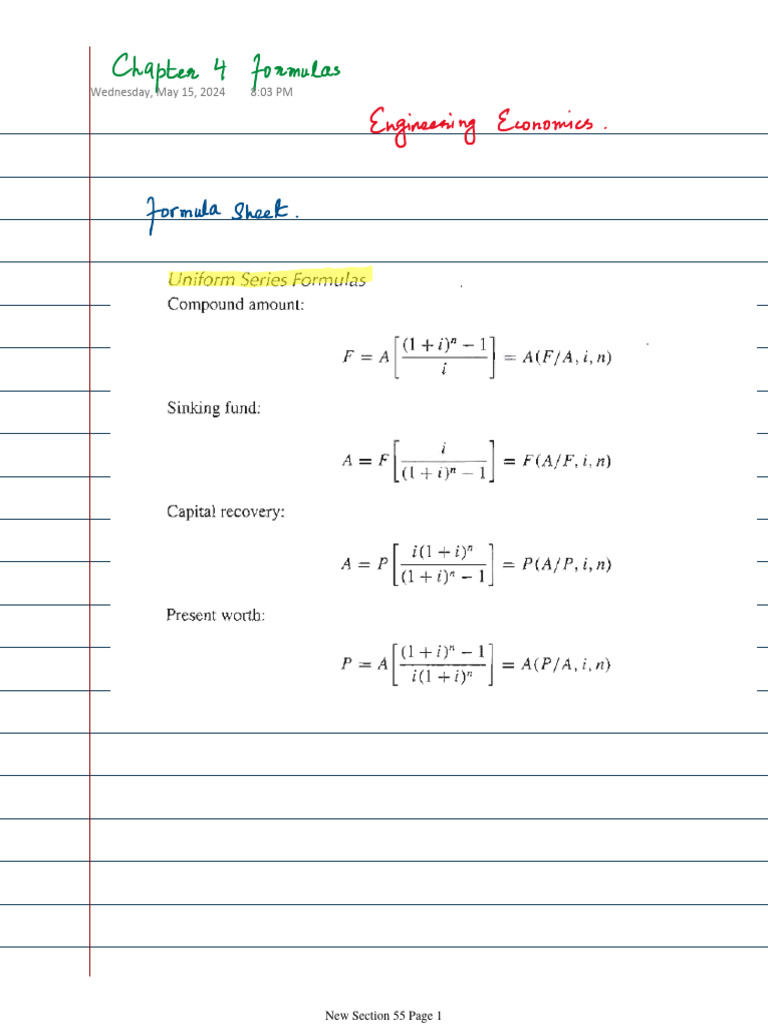 Chapter 4 Formulas
Wednesday, May 15, 2024 8:03 PM
Engineering Economics.
Formula Sheet.
Uniform Series Formulas
Compound amount:
F = A[((1 + i)ⁿ − 1)/i] = A(F/A, i, n)
Sinking fund:
A = F[i/((1 + i)ⁿ − 1)] = F(A/F, i, n)
Capital recovery:
A = P[i(1 + i)ⁿ/((1 + i)ⁿ − 1)] = P(A/P, i, n)
Present worth:
P = A[((1 + i)ⁿ − 1)/(i(1 + i)ⁿ)] = A(P/A, i, n)
New Section 55 Page 1